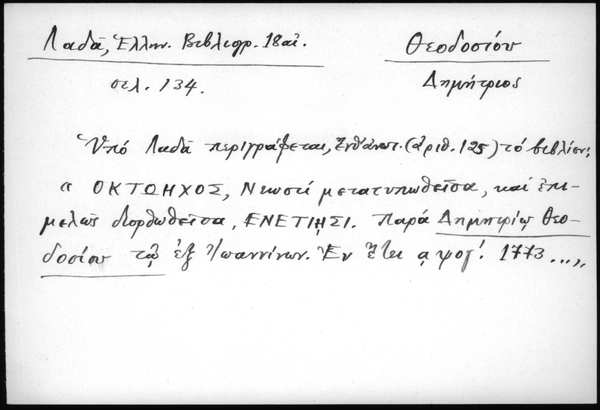 Λαδᾶ, Ἑλλην. Βιβλιογρ. 18 αἰ.
σελ. 134.
Θεοδοσίου
Δημήτριος
Ὑπό Λαδᾶ περιγράφεται, ἔνθ' ἀνωτ. (ἀριθ. 125) τό βιβλίον:
« ΟΚΤΩΗΧΟΣ, Νεωστί μετατυπωθεῖσα, καί ἐπι-
μελῶς διορθωθεῖσα, ΕΝΕΤΙΗΣΙ. Παρά Δημητρίῳ Θεο-
δοσίου τῷ ἐξ Ἰωαννίνων. Ἐν ἔτει αψογ'. 1773 ...»